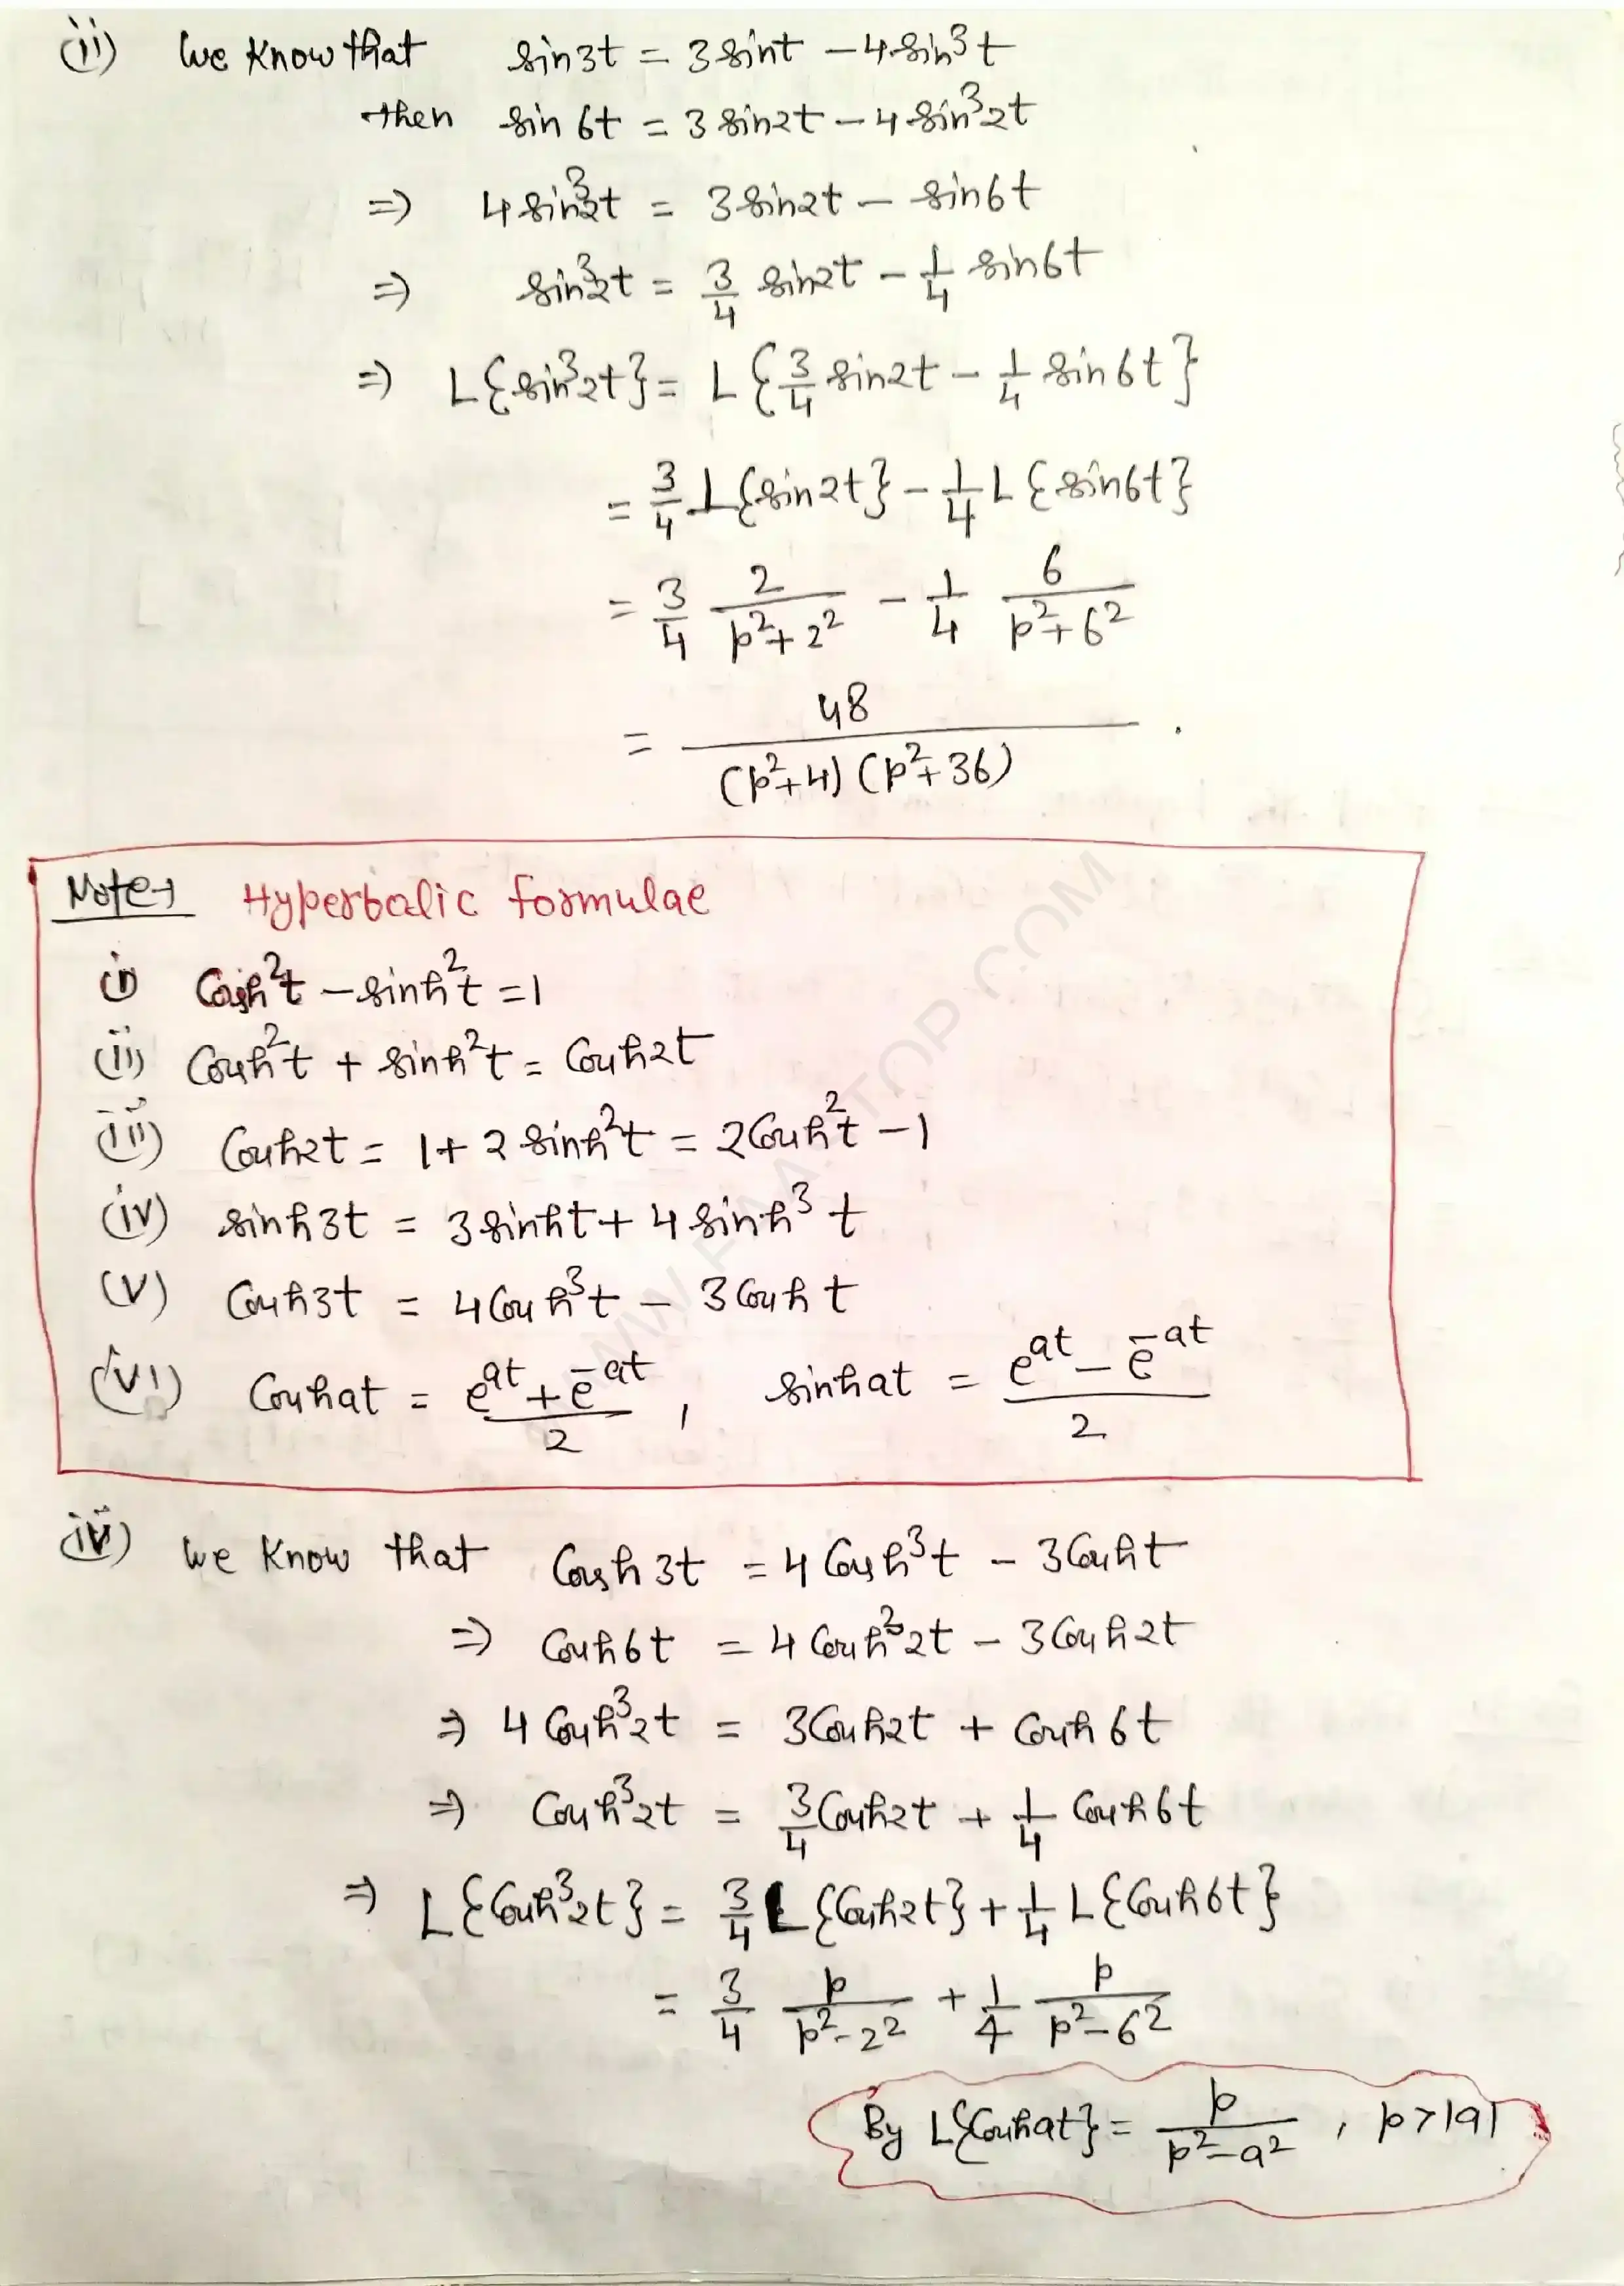 (ii) We know that sin3t = 3sint - 4sin³t
then sin6t = 3sin2t - 4sin³2t
⇒ 4sin³2t = 3sin2t - sin6t
⇒ sin³2t = 3/4 sin2t - 1/4 sin6t
⇒ L{sin³2t} = L{3/4 sin2t - 1/4 sin6t}
= 3/4 L{sin2t} - 1/4 L{sin6t}
= 3/4 2/(p²+2²) - 1/4 6/(p²+6²)
= 48/((p²+4)(p²+36)).
Note→ Hyperbolic formulae
(i) Cosh²t - sinh²t = 1
(ii) Cosh²t + sinh²t = Cosh2t
(iii) Cosh2t = 1 + 2sinh²t = 2Cosh²t - 1
(iv) sinh3t = 3sinht + 4sinh³t
(v) Cosh3t = 4Cosh³t - 3Cosht
(vi) Coshat = (e^at + e^-at)/2 , sinhat = (e^at - e^-at)/2
(iv) We know that Cosh3t = 4Cosh³t - 3Cosht
⇒ Cosh6t = 4Cosh³2t - 3Cosh2t
⇒ 4Cosh³2t = 3Cosh2t + Cosh6t
⇒ Cosh³2t = 3/4 Cosh2t + 1/4 Cosh6t
⇒ L{Cosh³2t} = 3/4 L{Cosh2t} + 1/4 L{Cosh6t}
= 3/4 p/(p²-2²) + 1/4 p/(p²-6²)
By L{Coshat} = p/(p²-a²) , p>|a|